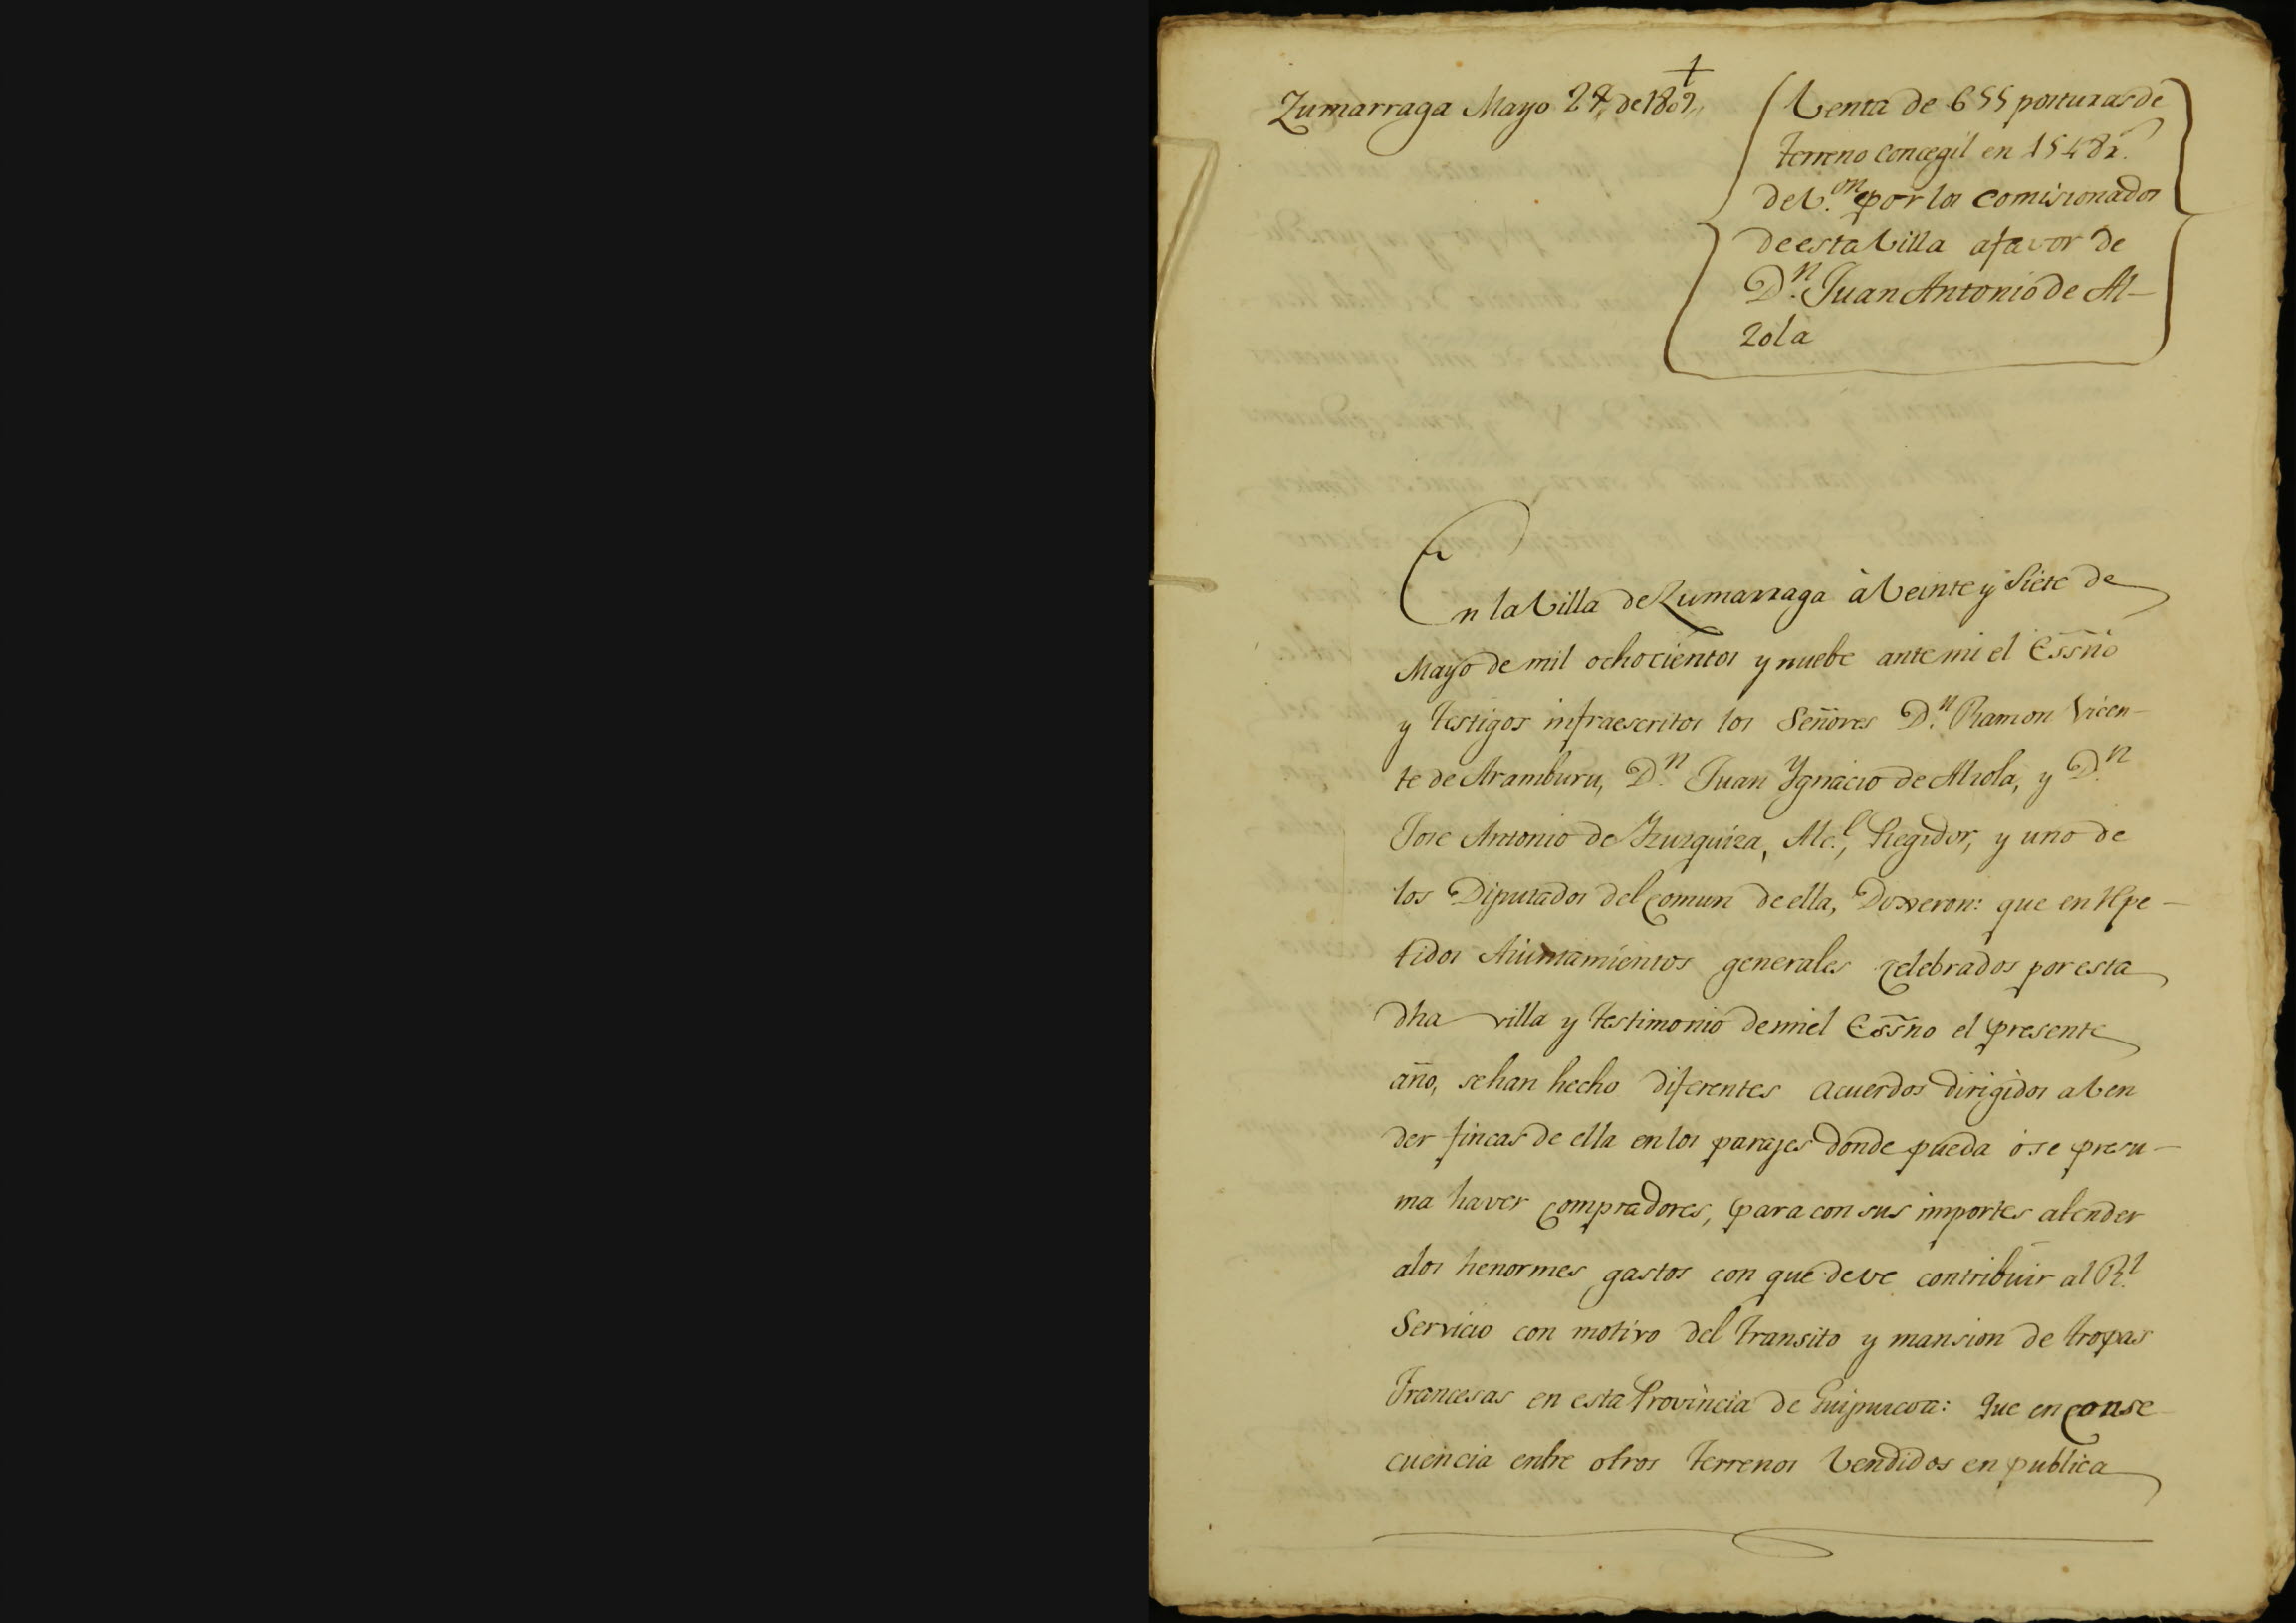 Zumarraga Mayo 27, de 1809,,
Venta de 655 posturas de
terreno concegil en 1548 r.^s
de V.^on por los comisionados
de esta Villa a favor de
D.^n Juan Antonio de Al-
zola
En la Villa de Zumarraga à Veinte y Siete de
Mayo de mil ochocientos y nuebe ante mi el Essño
y testigos infraescritos los Señores D.^n Ramon Vicen-
te de Aramburu, D.^n Juan Ygnacio de Alzola, y D.^n
Jose Antonio de Yzuzquiza, Alc.^e, Regidor, y uno de
los Diputados del comun de ella, Dixeron: que en Rpe-
tidos Aiuntamientos generales celebrados por esta
dha villa y testimonio de mi el Essño el presente
año, se han hecho diferentes acuerdos dirigidos a Ven
der fincas de ella en los parajes donde pueda ò se presu-
ma haver compradores, para con sus importes atender
a los henormes gastos con que deve contribuir al R.^l
Servicio con motivo del transito y mansion de tropas
Francesas en esta Provincia de Guipuzcoa: Que en conse
cuencia entre otros terrenos Vendidos en publica